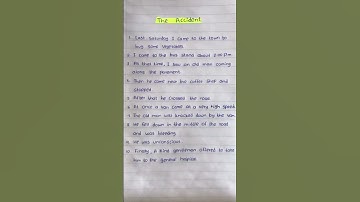 The Accident
1. Last Saturday I came to the town to
buy some vegetables
2. I came to the bus stand about 2.00 Pm
3. At that time, I saw an old man coming
along the pavement
4. Then he came near bus
stopped
5. After that he crossed the road
6. At once a van came at a very high speed
7. The old man was knocked down by the van
8. He fell down in the middle of the road
and was bleeding
9. He was unconscious
10. Finally, a kind gentleman offered to take
him to the general hospital